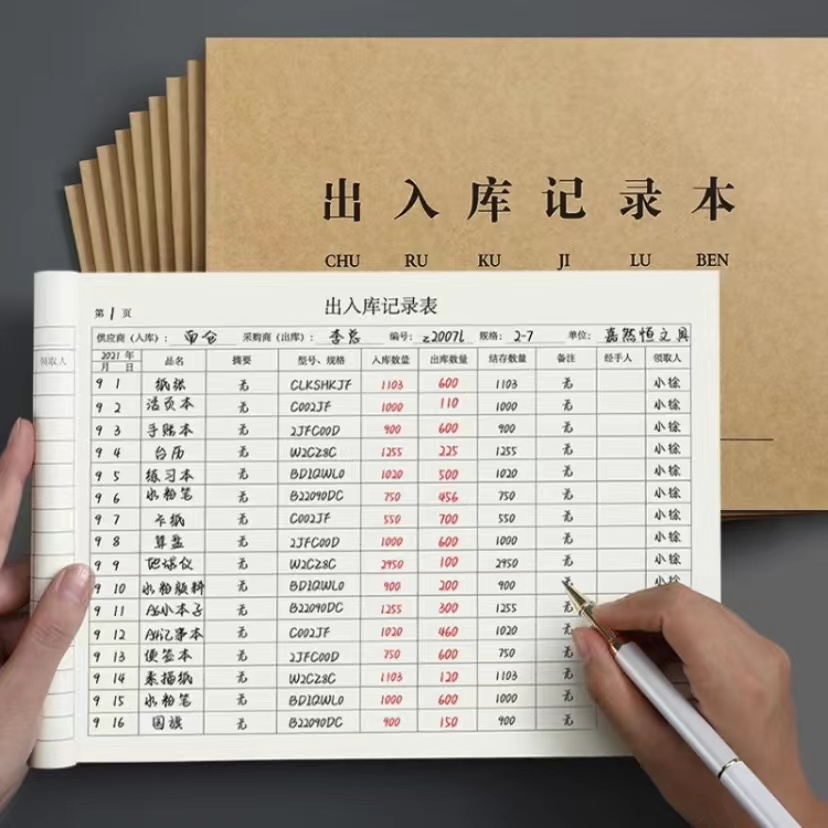 出入库记录本
CHU RU KU JI LU BEN
第 1 页
出入库记录表
供应商（入库）： 南仓 采购商（出库）： 李总 编号： z20071 规格： 2-7 单位： 嘉然恒文具
领取人
2021 年 品名 摘要 型号、规格 入库数量 出库数量 结存数量 备注 经手人 领取人
月 日
9 1 纸张 无 CLKSHKJF 1103 600 1103 无 小徐
9 2 活页本 无 C002JF 1000 110 1000 无 小徐
9 3 手账本 无 2JFC00D 900 600 900 无 小徐
9 4 台历 无 W2CZ8C 1255 225 1255 无 小徐
9 5 练习本 无 BDIQWL0 1020 500 1020 无 小徐
9 6 水粉笔 无 B22090DC 750 456 750 无 小徐
9 7 卡纸 无 C002JF 550 700 550 无 小徐
9 8 算盘 无 2JFC00D 1000 600 1000 无 小徐
9 9 地球仪 无 W2CZ8C 2950 100 2950 无 小徐
9 10 水粉颜料 无 BDIQWL0 900 200 900 无 小徐
9 11 A6小本子 无 B22090DC 1255 300 1255 无
9 12 A4记事本 无 C002JF 1020 460 1020 无
9 13 便签本 无 2JFC00D 750 600 750 无
9 14 素描纸 无 W2CZ8C 1103 120 1103 无
9 15 水粉笔 无 BDIQWL0 1000 600 1000 无
9 16 国旗 无 B22090DC 900 150 900 无